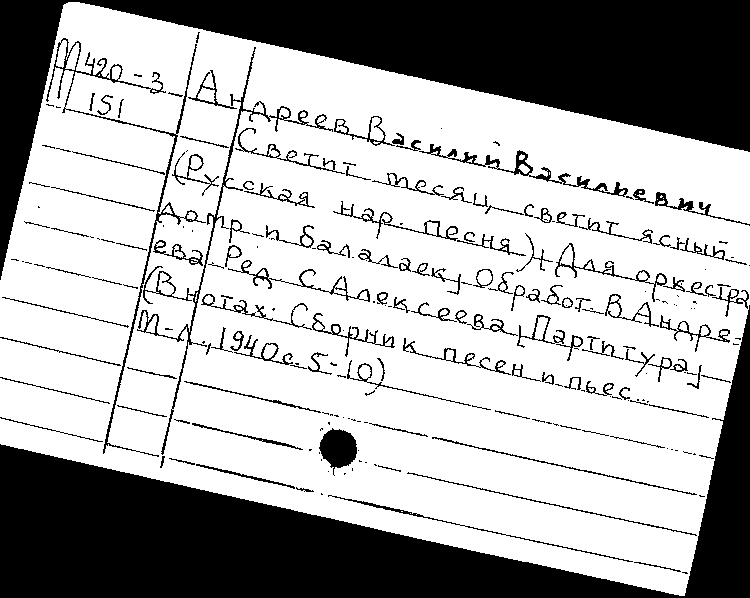 М 420-3
151
Андреев, Василий Васильевич
Светит месяц, светит ясный...
(Русская нар. песня). [Для оркестра
домр и балалаек] Обработ. В. Андре-
ева. Ред. С. Алексеева [Партитура]
(В нотах: Сборник песен и пьес...
М-Л., 1940 с. 5-10)